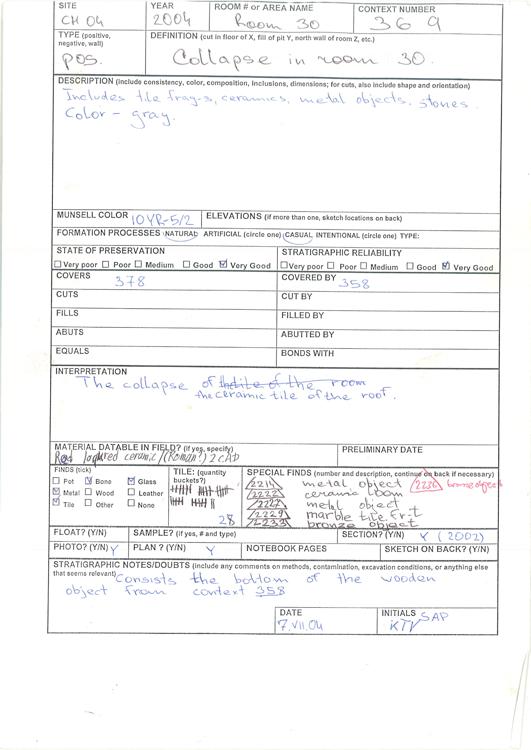 SITE CH 04 YEAR 2004 ROOM # OR AREA NAME Room 30 CONTEXT NUMBER 369
TYPE (positive, negative, wall) pos. DEFINITION (cut in floor of X, fill of pit Y, north wall of room Z, etc.) Collapse in room 30.
DESCRIPTION (include consistency, color, composition, inclusions, dimensions; for cuts, also include shape and orientation)
Includes tile frag-s, ceramics, metal objects. stones.
Color - gray.
MUNSELL COLOR 10YR-5/2 ELEVATIONS (if more than one, sketch locations on back)
FORMATION PROCESSES NATURAL ARTIFICIAL (circle one) CASUAL INTENTIONAL (circle one) TYPE:
STATE OF PRESERVATION STRATIGRAPHIC RELIABILITY
Very poor Poor Medium Good Very Good Very poor Poor Medium Good Very Good
COVERS 378 COVERED BY 358
CUTS CUT BY
FILLS FILLED BY
ABUTS ABUTTED BY
EQUALS BONDS WITH
INTERPRETATION
The collapse of the room
the ceramic tile of the roof.
MATERIAL DATABLE IN FIELD? (if yes, specify) PRELIMINARY DATE
Red ceramic/(Roman?) 2 cAD
FINDS (tick) TILE: (quantity buckets?) SPECIAL FINDS (number and description, continue on back if necessary)
Pot Bone Glass 2214 metal object 2236
Metal Wood Leather 2222 ceramic loom
Tile Other None 2227 metal object
2229 marble tile fr-t
28 2233 bronze object
FLOAT? (Y/N) SAMPLE? (if yes, # and type) SECTION? (Y/N) Y (2002)
PHOTO? (Y/N) Y PLAN? (Y/N) Y NOTEBOOK PAGES SKETCH ON BACK? (Y/N)
STRATIGRAPHIC NOTES/DOUBTS (include any comments on methods, contamination, excavation conditions, or anything else
that seems relevant) Consists the bottom of the wooden
object from context 358
DATE 7.VII.04 INITIALS SAP
KTV